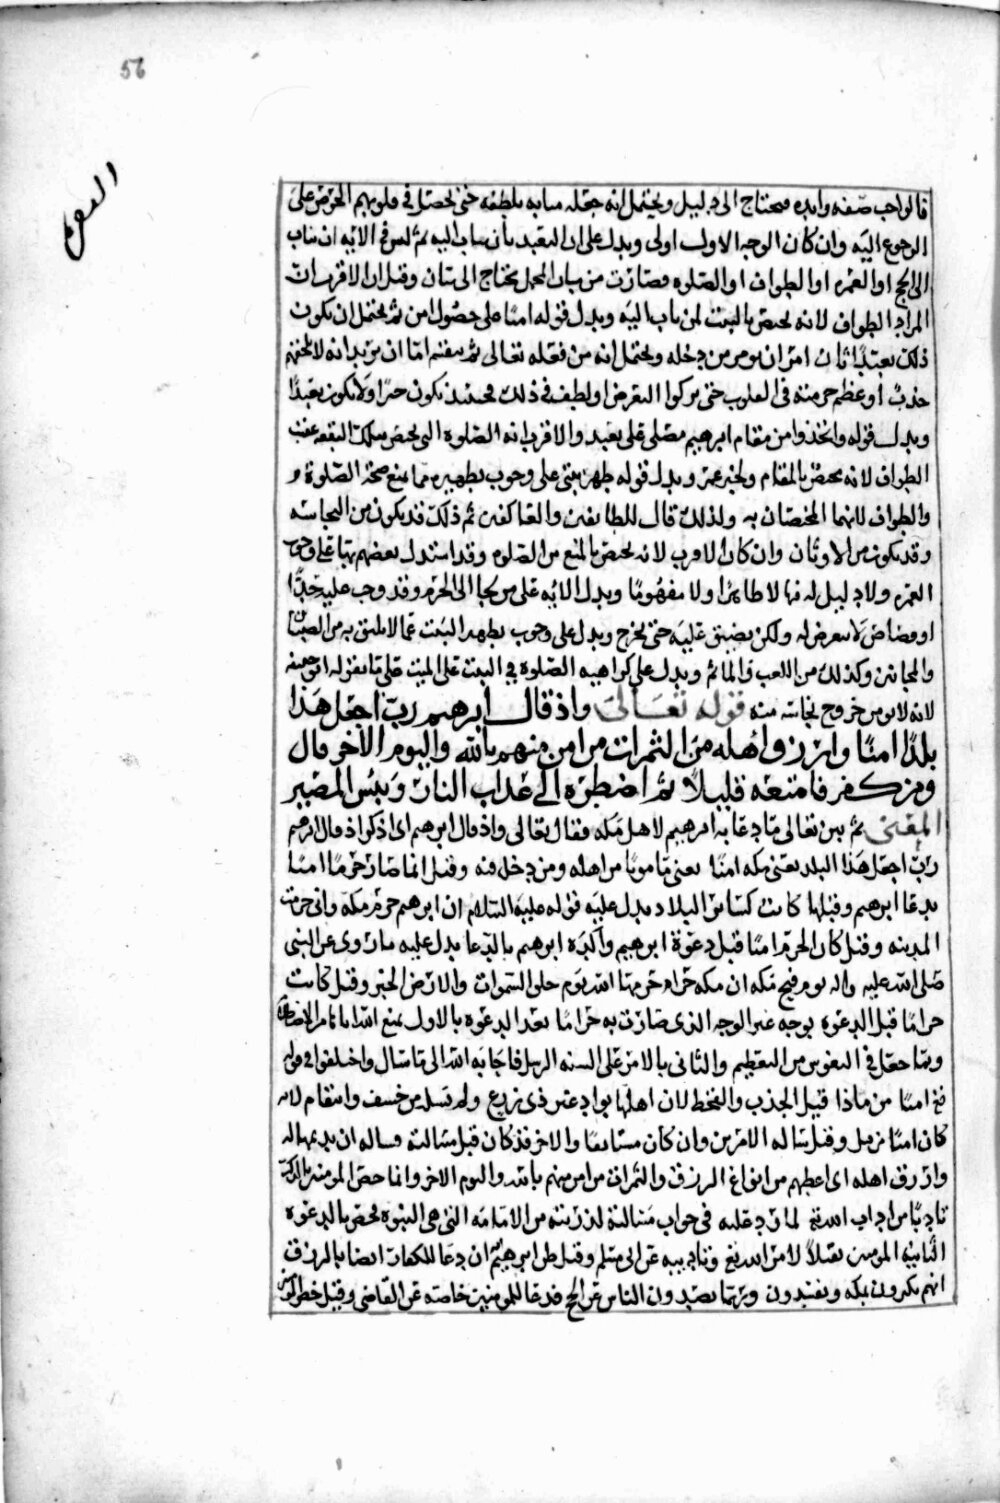 56
البقرة
فالواجب صفه وابده محتاج الى دليل ويحتمل انه جعله مثابه بلطفه حتى يحصل في قلوبهم الحرص على
الرجوع اليه وان كان الوجه الاول اولى ويدل على ان التعبد بأن يثاب اليه ثم ليس في الايه ان يثاب
الى الحج او العمره او الطواف او الصلوه فصارت من باب المجمل يحتاج الى بيان وقيل ان الاقرب ان
المراد الطواف لانه يختص بالبيت لمن ثاب اليه ويدل قوله امنا على حصول امن ثم يحتمل ان يكون
ذلك تعبدا ثان امر ان يومن من دخله ويحتمل انه من فعله تعالى ثم ينقسم اما ان يريد انه لا يلحقهم
جدب أو عظم حرمته في القلوب حتى يتركوا التعرض او لطف في ذلك فحينئذ يكون خبرا ولا يكون تعبدا
ويدل قوله واتخذوا من مقام ابرهيم مصلى على تعبد والاقرب انه الصلوة التي تختص بتلك البقعه عقب
الطواف لانه يختص بالمقام ولخبر عمر ويدل قوله طهرا بيتي على وجوب تطهيره مما يمنع صحة الصلوة و
والطواف لانهما المختصان به ولذلك قال للطائفين والعاكفين ثم ذلك قد يكون من النجاسه
وقد يكون من الاوثان وان كان الاقرب لانه يختص بالمنع من الصلوه وقد استدل بعضهم بها على وجوب
العمره ولا دليل له فيها لا ظاهرا ولا مفهوما ويدل الايه على من لجا الى الحرم وقد وجب عليه حد
او قصاص لا يتعرض له ولكن يضيق عليه حتى يخرج ويدل على وجوب تطهير البيت عما لا يليق به من الصبيان
والمجانين وكذلك من اللعب والماثم ويدل على كراهيه الصلوة في البيت على الميت على ما يقوله ابو حنيفه
لانه لا يومن خروج نجاسه منه قوله تعالى واذ قال ابرهيم رب اجعل هذا
بلدا امنا وارزق اهله من الثمرات من امن منهم بالله واليوم الاخر قال
ومن كفر فامتعه قليلا ثم اضطره الى عذاب النار وبئس المصير
المعنى ثم بين تعالى ما دعا به ابرهيم لاهل مكه فقال تعالى واذ قال ابرهيم اي اذكر اذ قال ابرهيم
رب اجعل هذا البلد يعني مكه امنا يعني مامونا من اهله ومن دخل فيه وقيل انما صار حرما امنا
بدعا ابرهيم وقبلها كانت كسائر البلاد يدل عليه قوله عليه السلام ان ابرهيم حرم مكه واني حرمت
المدينه وقيل كان الحرم امنا قبل دعوة ابرهيم واكده ابرهيم بالدعا يدل عليه ما روى عن النبي
صلى الله عليه واله يوم فتح مكه ان مكه حرام حرمها الله يوم خلق السموات والارض الخبر وقيل كانت
حراما قبل الدعوه بوجه غير الوجه الذي صارت به حراما بعد الدعوه بالاول بمنع الله اياها من الاضطلام
وبما جعل في النفوس من التعظيم والثاني بالامر على السنه الرسل فاجابه الله الى ما سال واختلفوا في قوله
امنا من ماذا قيل الجدب والقحط لان اهلها بواد غير ذي زرع ولم يسل من خسف وانتقام لانه
كان امنا من قبل وقيل ساله الامرين وان كان مستانفا والاخر قد كان قبل مسالته وساله ان يديمها له
وارزق اهله اي اعطهم من انواع الرزق والثمرات من امن منهم بالله واليوم الاخر وانما خص المومنين بالدعا
تادبا من اداب الله تع لما رد عليه في جواب مسالته لذريته من الامامه التي هي النبوه لخص بالدعوه
الثانيه المومنين تقبلا لامر الله تع وتاديبه عن ابي مسلم وقيل ظن ابرهيم ان دعا للكفار ايضا بالرزق
انهم يكثرون بمكه ويفسدون وربما يصدون الناس عن الحج فدعا للمومنين خاصه عن القاضي وقيل